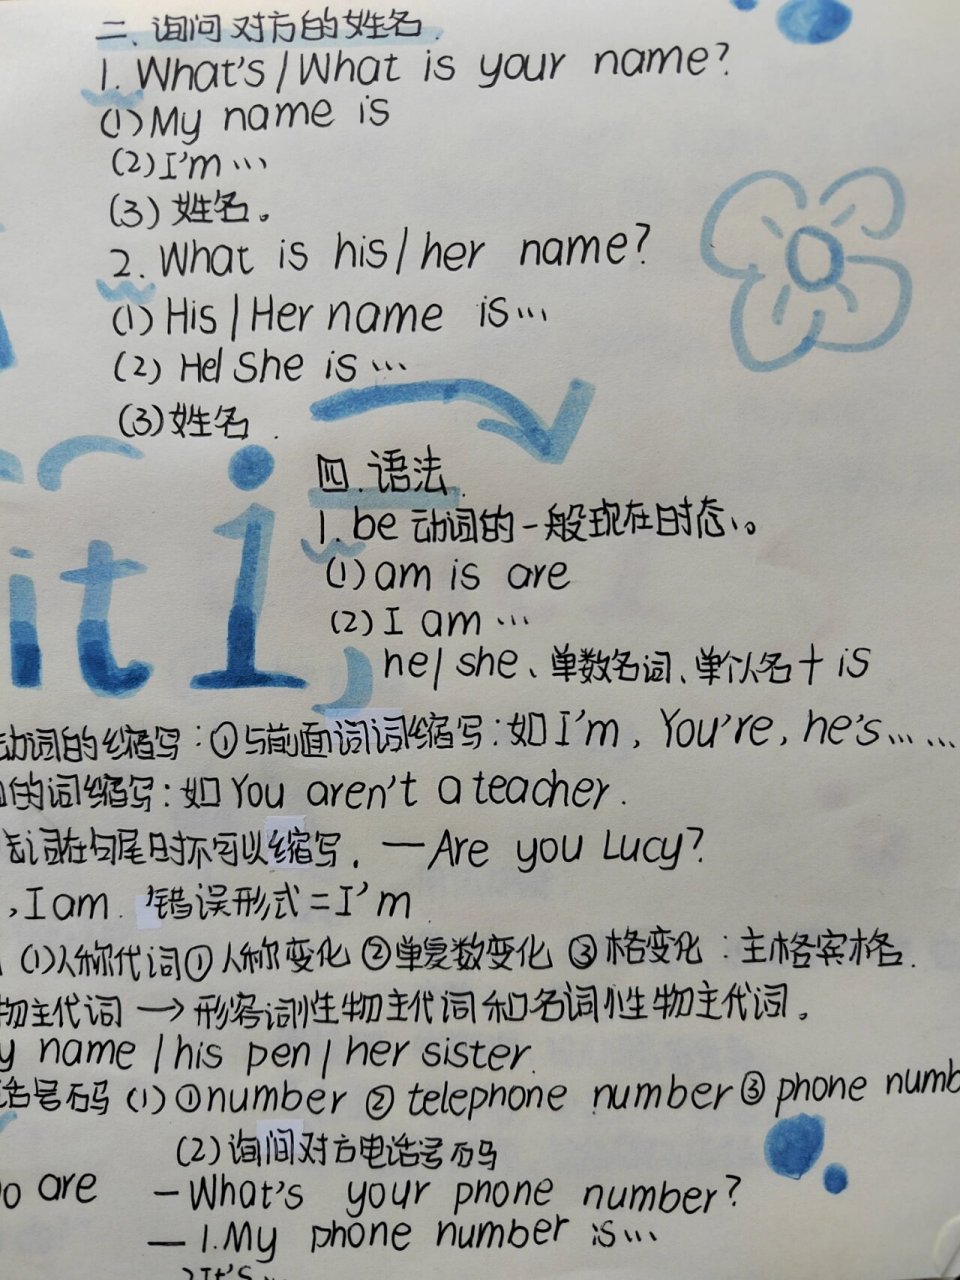 二、询问对方的姓名.
1. What's / What is your name?
(1) My name is
(2) I'm …
(3) 姓名。
2. What is his / her name?
(1) His / Her name is …
(2) He / She is …
(3) 姓名.
四. 语法.
1. be 动词的一般现在时态、。
(1) am is are
(2) I am …
he / she、单数名词、单个人名 + is
it 1,
动词的缩写:①与前面词词缩写:如 I'm, You're, he's……
的词缩写:如 You aren't a teacher.
词在句尾时不可以缩写. —Are you Lucy?
, I am. 错误形式 = I'm
(1) 人称代词 ① 人称变化 ② 单复数变化 ③ 格变化:主格宾格.
物主代词 → 形容词性物主代词和名词性物主代词。
y name / his pen / her sister.
话号码 (1) ① number ② telephone number ③ phone numb
(2) 询问对方电话号码
are
— What's your phone number?
— 1. My phone number is …
2 It's …